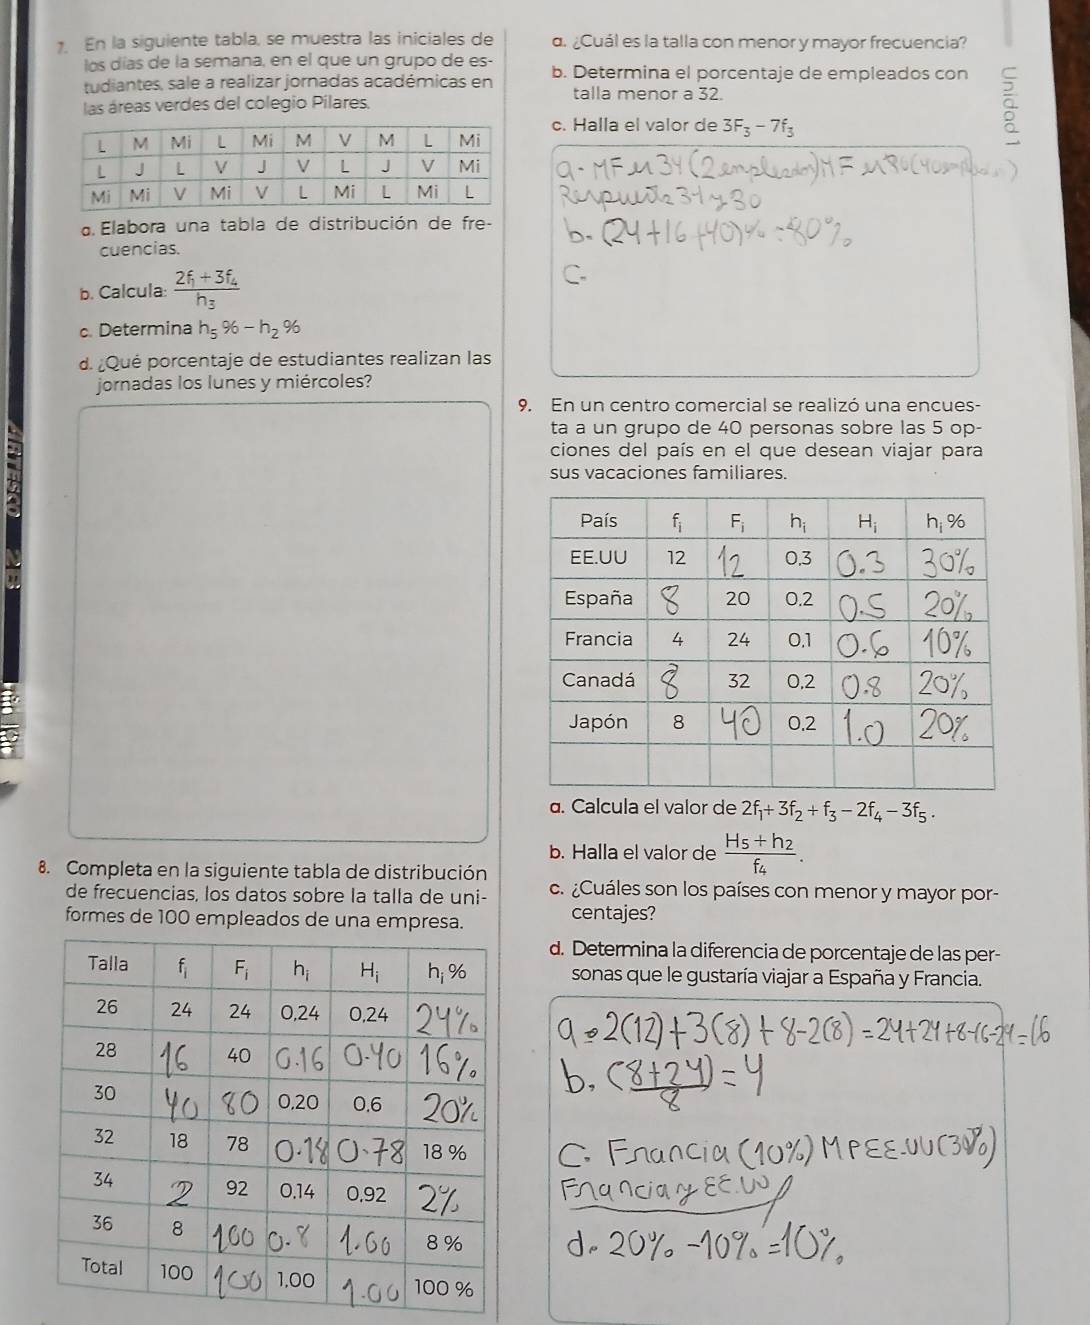 7. En la siguiente tabla, se muestra las iniciales de
los días de la semana, en el que un grupo de es-
tudiantes, sale a realizar jornadas académicas en
las áreas verdes del colegio Pilares.
L M Mi L Mi M V M L Mi
L J L V J V L J V Mi
Mi Mi V Mi V L Mi L Mi L
a. Elabora una tabla de distribución de fre-
cuencias.
b. Calcula: (2f₁ + 3f₄)/h₃
c. Determina h₅% − h₂%
d. ¿Qué porcentaje de estudiantes realizan las
jornadas los lunes y miércoles?
8. Completa en la siguiente tabla de distribución
de frecuencias, los datos sobre la talla de uni-
formes de 100 empleados de una empresa.
Talla fᵢ Fᵢ hᵢ Hᵢ hᵢ%
26 24 24 0,24 0,24 24%
28 16 40 0.16 0.40 16%
30 40 80 0,20 0,6 20%
32 18 78 0.18 0.78 18 %
34 2 92 0,14 0,92 2%
36 8 100 0.8 1.00 8 %
Total 100 100 1,00 1.00 100 %
a. ¿Cuál es la talla con menor y mayor frecuencia?
b. Determina el porcentaje de empleados con
talla menor a 32.
c. Halla el valor de 3F₃ − 7f₃
a. MF 34 (2 empleados) MF 80 (40
Respuesta 34 y 30
b. (24+16+40)% = 80%
C.
9. En un centro comercial se realizó una encues-
ta a un grupo de 40 personas sobre las 5 op-
ciones del país en el que desean viajar para
sus vacaciones familiares.
País fᵢ Fᵢ hᵢ Hᵢ hᵢ%
EE.UU 12 12 0,3 0.3 30%
España 8 20 0,2 0.5 20%
Francia 4 24 0,1 0.6 10%
Canadá 8 32 0,2 0.8 20%
Japón 8 40 0,2 1.0 20%
a. Calcula el valor de 2f₁+ 3f₂ + f₃ − 2f₄ − 3f₅ .
b. Halla el valor de (H₅ + h₂)/f₄ .
c. ¿Cuáles son los países con menor y mayor por-
centajes?
d. Determina la diferencia de porcentaje de las per-
sonas que le gustaría viajar a España y Francia.
a 2(12)+3(8)+8-2(8)=24+24+8-16-24=16
b. (8+24)/8 = 4
C. Francia (10%) MPEE.UU(30%)
Francia y EE.UU
d. 20% -10% =10%
Unidad 1
ARTESCO 2B